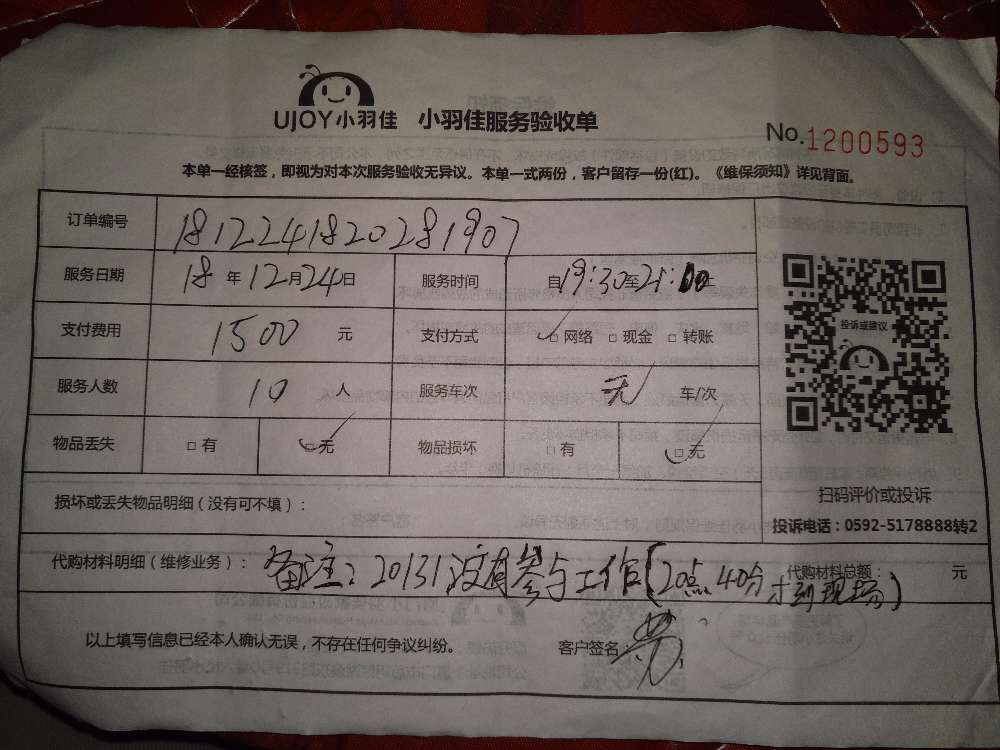 UJOY小羽佳 小羽佳服务验收单
No.1200593
本单一经核签，即视为对本次服务验收无异议。本单一式两份，客户留存一份(红)。《维保须知》详见背面。
订单编号 1812241820281907
服务日期 18 年 12 月 24 日 服务时间 自 19:30 至 21:00 止
支付费用 1500 元 支付方式 □ 网络 □ 现金 □ 转账
服务人数 10 人 服务车次 无 车/次
物品丢失 □ 有 □ 无 物品损坏 □ 有 □ 无
投诉或建议
扫码评价或投诉
投诉电话：0592-5178888转2
损坏或丢失物品明细（没有可不填）：
代购材料明细（维修业务）： 备注：20131没有参与工作(20点40分才到现场) 代购材料总额： 元
以上填写信息已经本人确认无误，不存在任何争议纠纷。 客户签名：